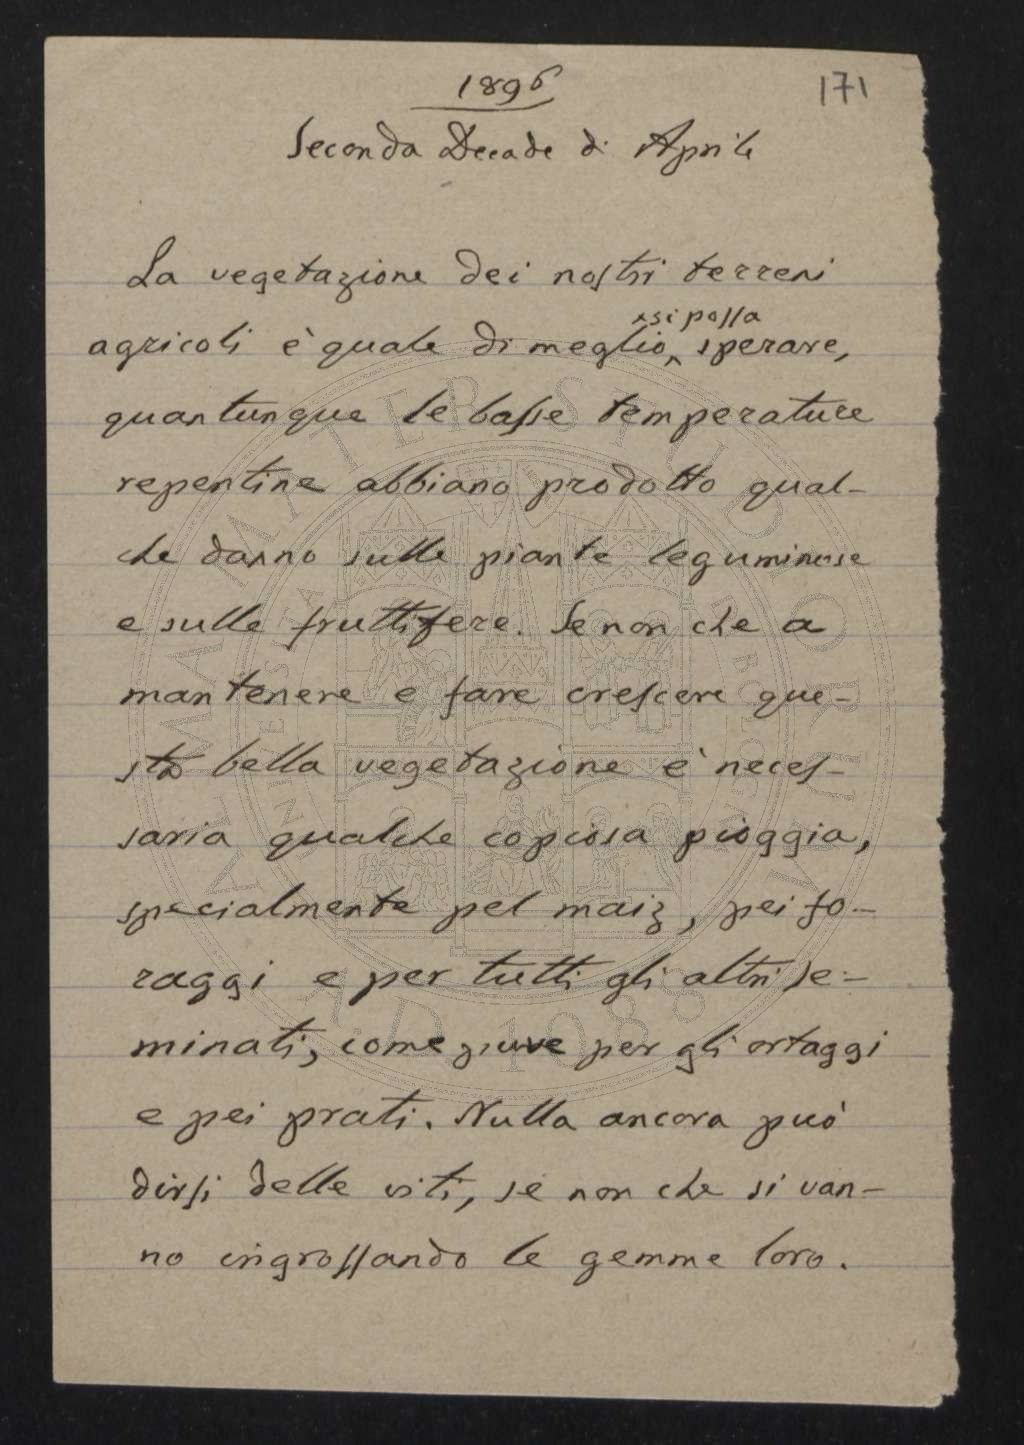 1896
171
Seconda Decade di Aprile
La vegetazione dei nostri terreni
si possa
agricoli è quale di meglio sperare,
quantunque le basse temperature
repentine abbiano prodotto qual-
che danno sulle piante leguminose
e sulle fruttifere. Se non che a
mantenere e fare crescere que-
sta bella vegetazione è neces-
saria qualche copiosa pioggia,
specialmente pel maiz, pei fo-
raggi e per tutti gli altri se-
minati, come pure per gli ortaggi
e pei prati. Nulla ancora può
dirsi delle viti, se non che si van-
no ingrossando le gemme loro.
ALMA MATER STUDIORUM
A.D. 1088